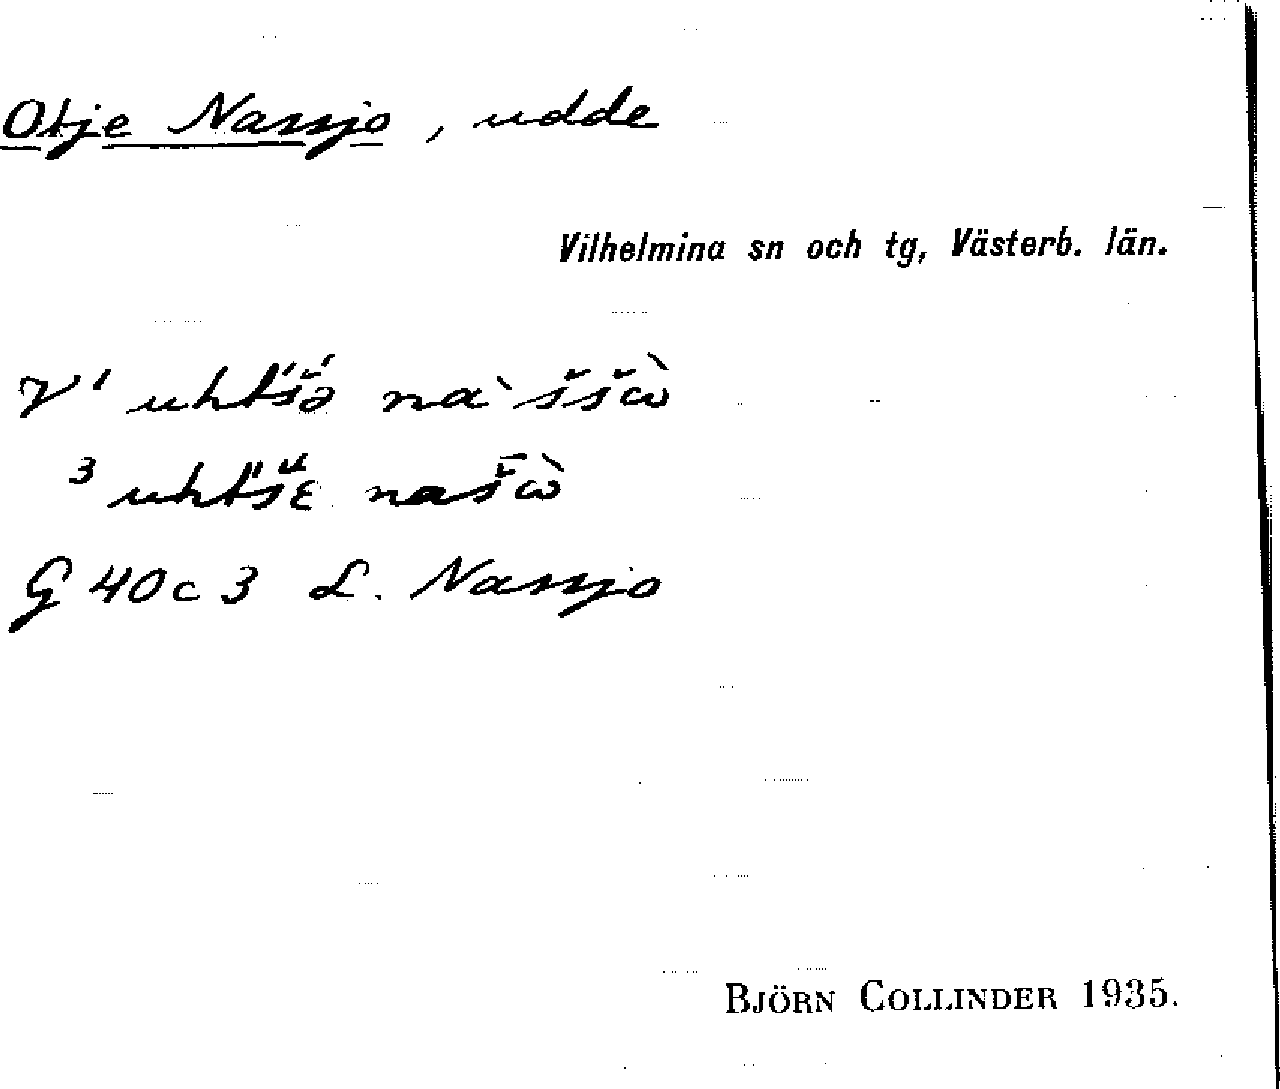 Otje Nassjo, udde
Vilhelmina sn och tg, Västerb. län.
V¹ uhtš́ə́ na`ššὼ
³ našὼ
G 40c3 L. Nassjo
BJÖRN COLLINDER 1935.